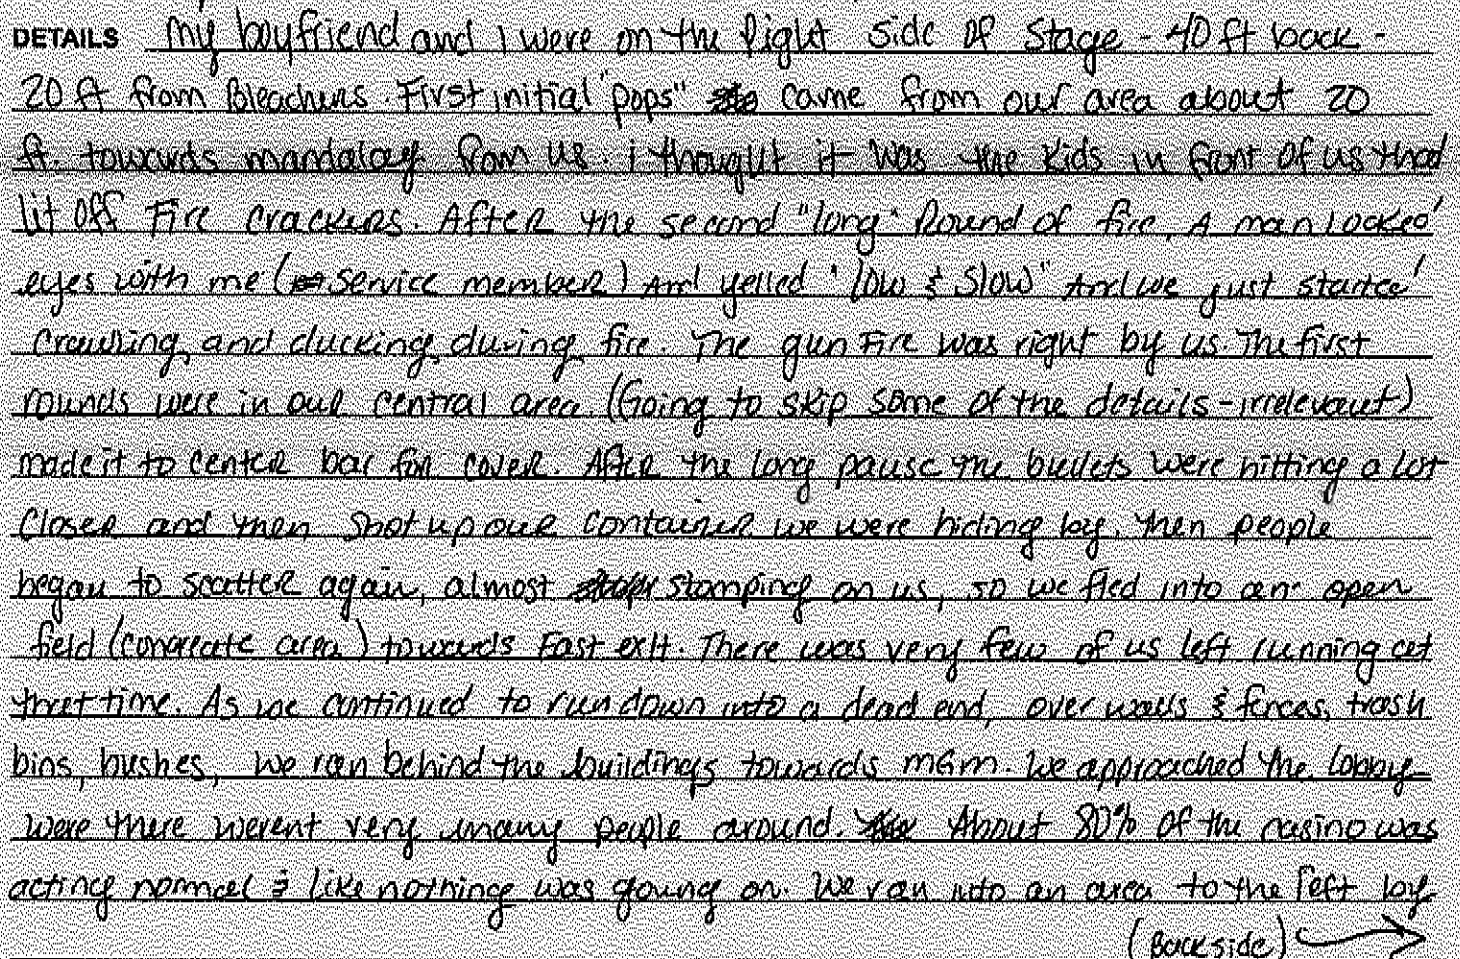 DETAILS my boyfriend and I were on the Right side of stage - 40 ft back -
20 ft from Bleachers. First initial "pops" came from our area about 20
ft. towards mandalay from us. i thought it was the kids in front of us that
lit off Fire crackers. After the second "long" Round of fire, A man locked
eyes with me (service member) And yelled "low & slow" And we just started
crawling, and ducking, during fire. The gun Fire was right by us. The first
rounds were in our central area. (Going to skip some of the details - irrelevant)
made it to center bar for cover. After the long pause the bullets were hitting a lot
closer and then shot up our container we were hiding by. Then people
began to scatter again, almost stomping on us, so we fled into an open
field (concreate area) towards East exit. There was very few of us left running at
that time. As we continued to run down into a dead end, over walls & fences, trash
bins, bushes, we ran behind the buildings towards mGm. We approached the lobby
were there werent very many people around. About 80% of the casino was
acting normal & like nothing was going on. We ran into an area to the left by
(Back side)